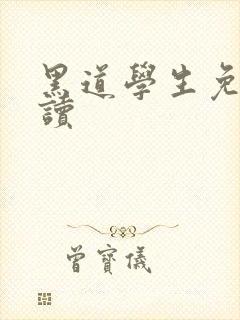 黑道學生免
讀
曾寶儀